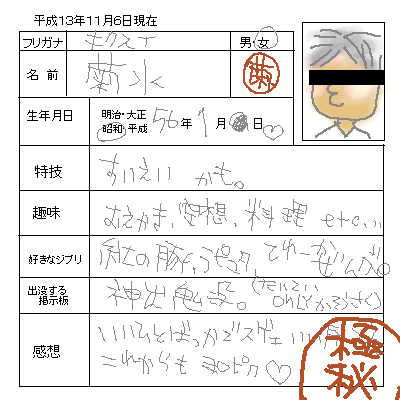 平成13年11月6日現在
フリガナ キクスイ 男・女
名前 菊水 菊
生年月日 明治・大正 昭和・平成 56年 9月 日♡
特技 すいえい かも。
趣味 おえかき、空想、料理 etc...
好きなジブリ 紅の豚、ラピュタ、てゆーか ぜんぶ。
出没する掲示板 神出鬼没。(だいたい
感想 いいひとばっかでスゲェいい
これからも ヨロピク♡
極秘